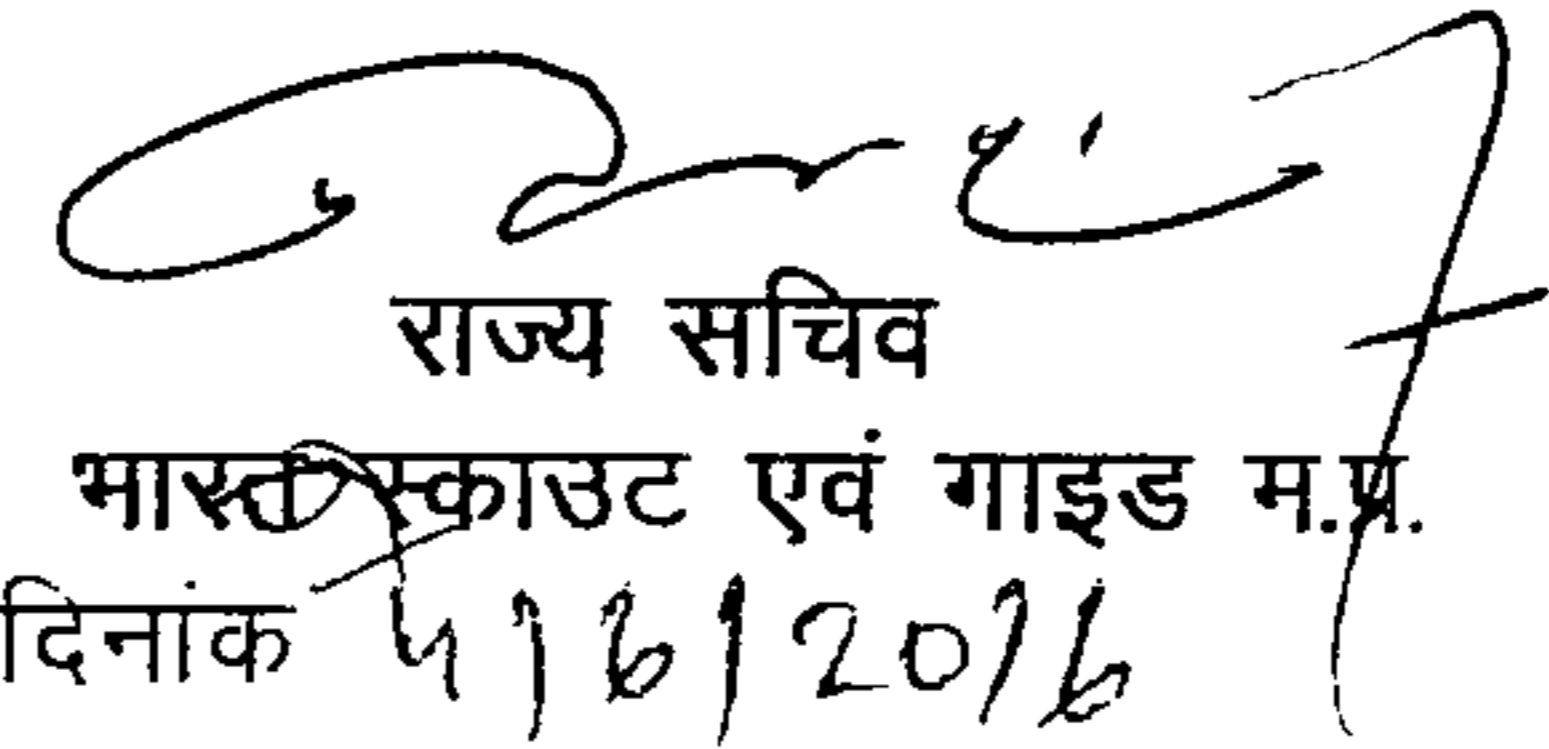 राज्य सचिव
भारत स्काउट एवं गाइड म.प्र.
दिनांक 4/6/2016